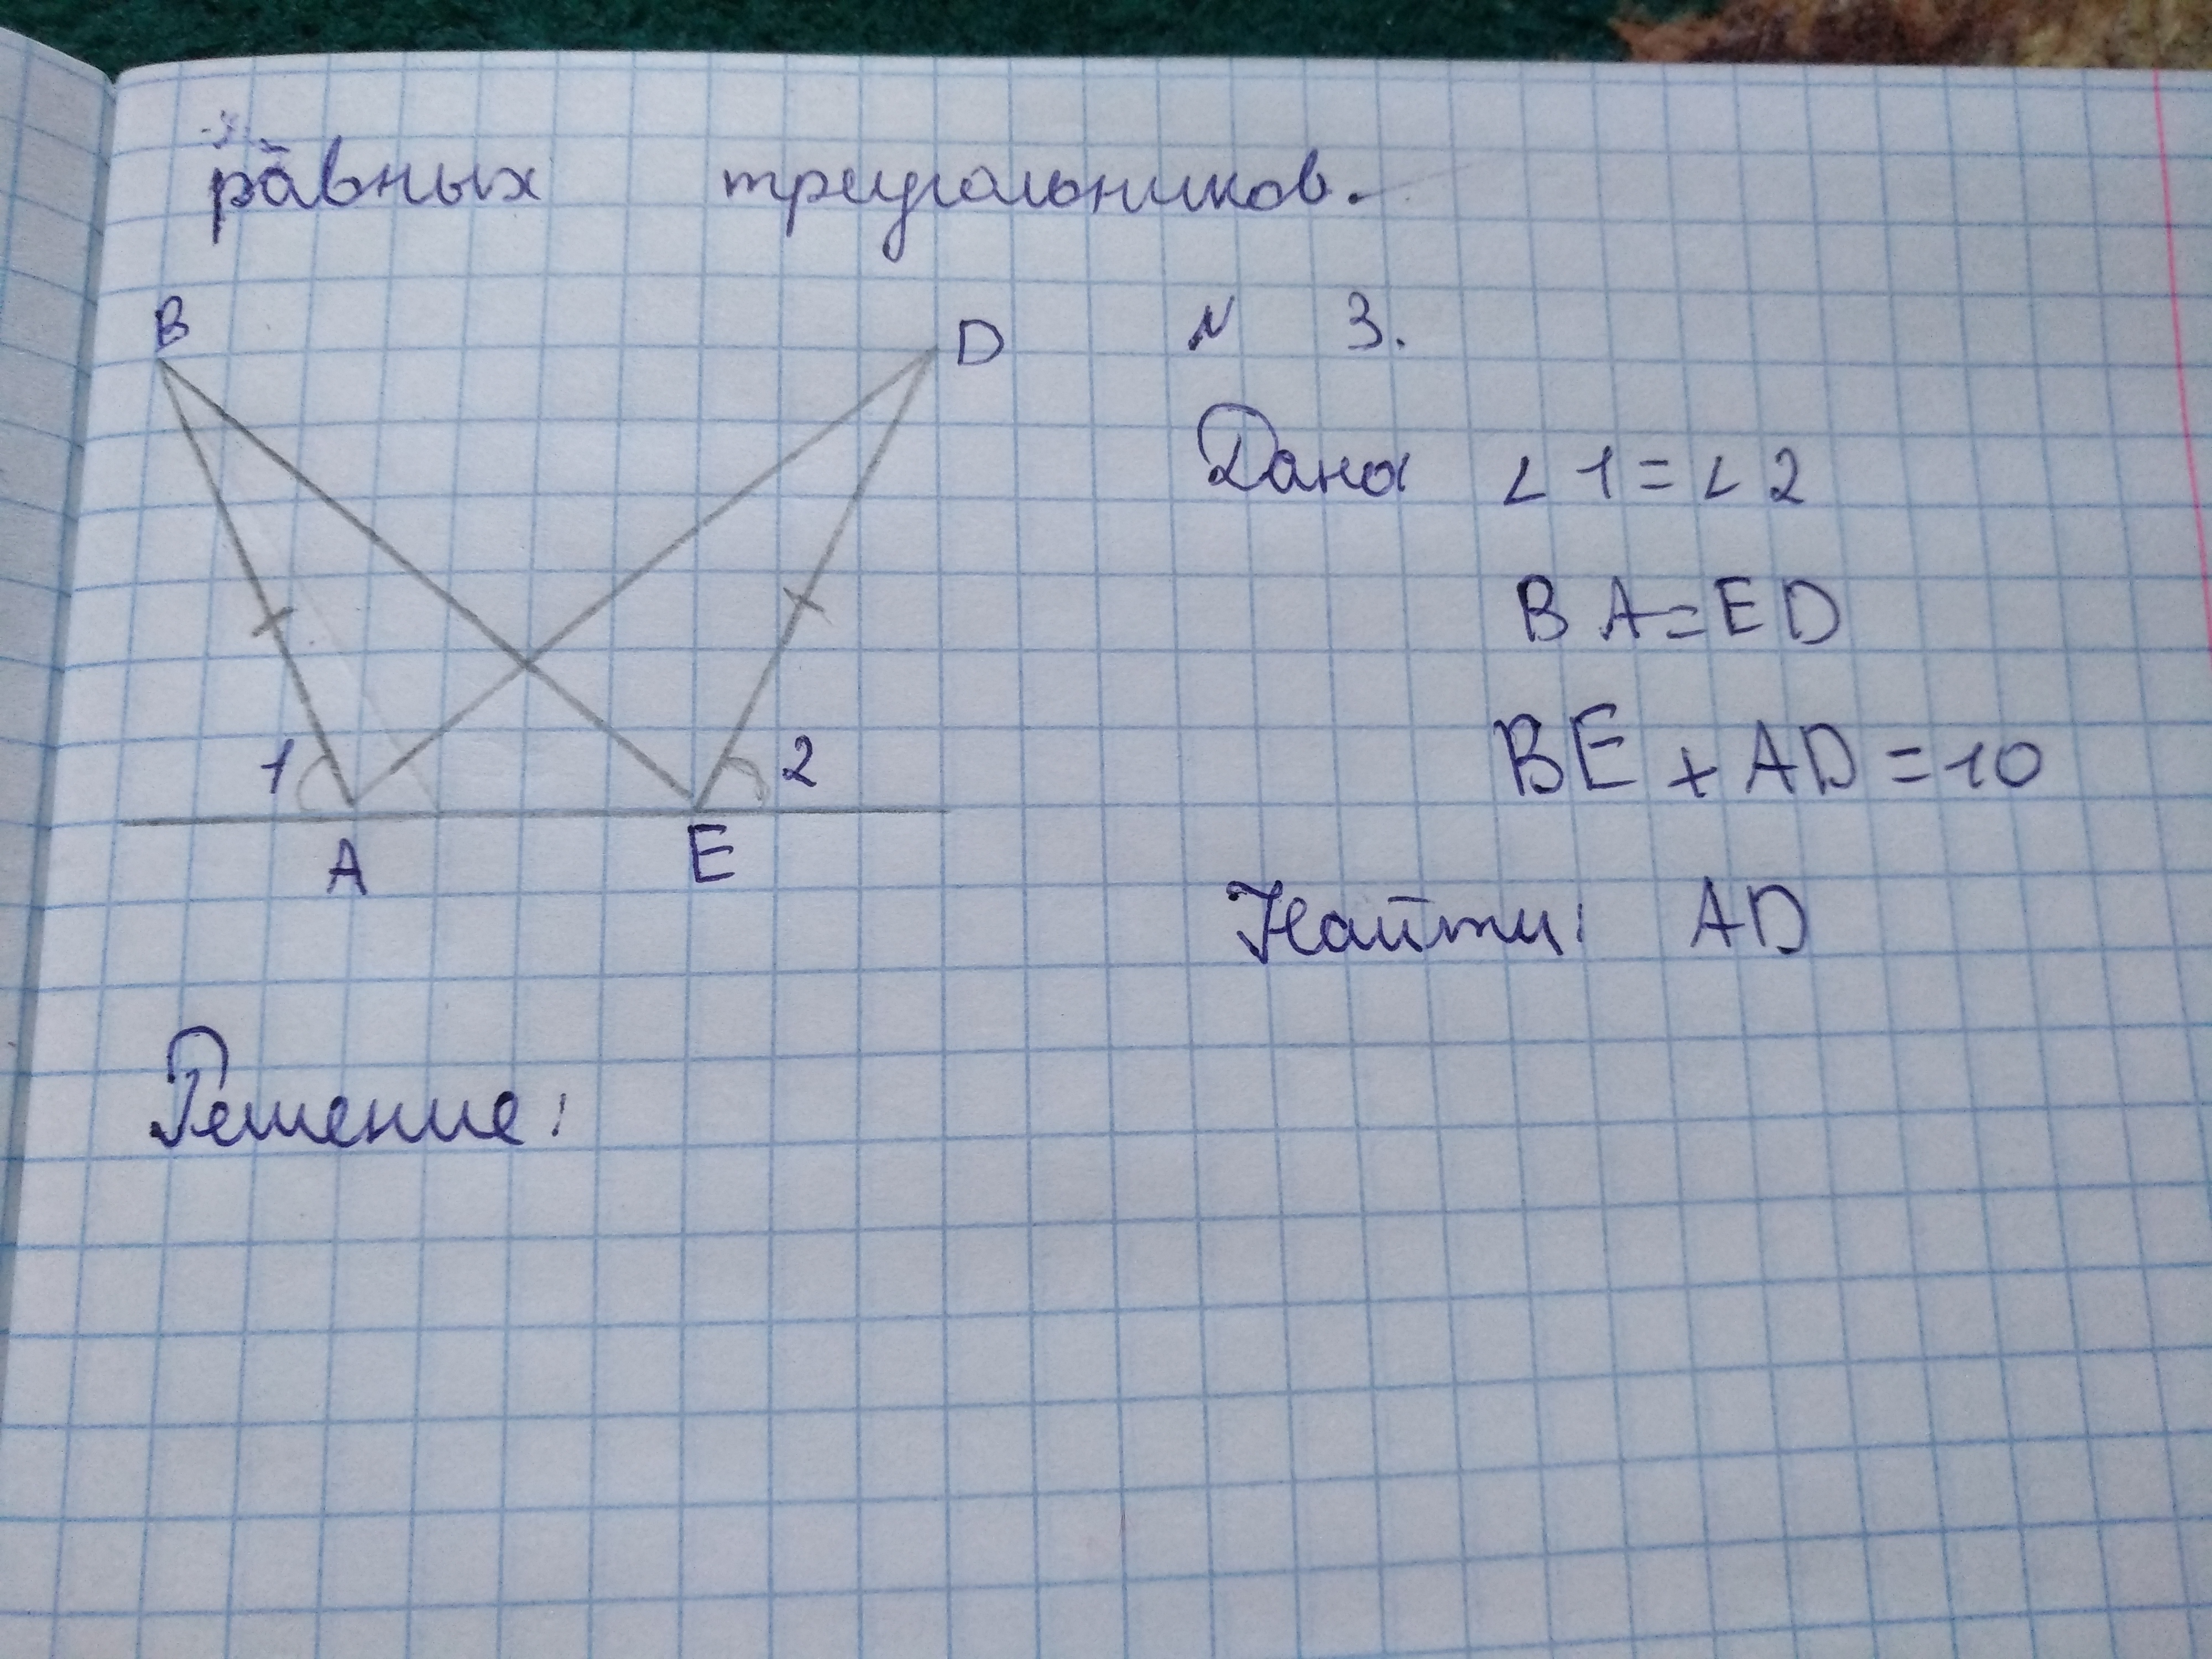 равных треугольников.
B
D
N 3.
Дано ∠1=∠2
BA=ED
BE+AD=10
1
2
A
E
Найти: AD
Решение: